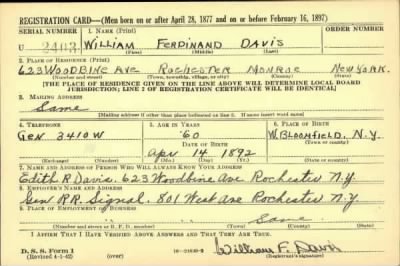 REGISTRATION CARD—(Men born on or after April 28, 1877 and on or before February 16, 1897)
SERIAL NUMBER 1. NAME (Print) ORDER NUMBER
U 2403 WILLIAM FERDINAND DAVIS
(First) (Middle) (Last)
2. PLACE OF RESIDENCE (Print)
623 WOODBINE AVE ROCHESTER MONROE NEW YORK.
(Number and street) (Town, township, village, or city) (County) (State)
[THE PLACE OF RESIDENCE GIVEN ON THE LINE ABOVE WILL DETERMINE LOCAL BOARD
JURISDICTION; LINE 2 OF REGISTRATION CERTIFICATE WILL BE IDENTICAL]
3. MAILING ADDRESS
Same
[Mailing address if other than place indicated on line 2. If same insert word same]
4. TELEPHONE 5. AGE IN YEARS 6. PLACE OF BIRTH
Gen 3410W 60 W. BLOOMFIELD, N.Y.
DATE OF BIRTH
Apr 14 1892
(Exchange) (Number) (Mo.) (Day) (Yr.) (State or country)
7. NAME AND ADDRESS OF PERSON WHO WILL ALWAYS KNOW YOUR ADDRESS
Edith R Davis. 623 Woodbine Ave Rochester N.Y.
8. EMPLOYER'S NAME AND ADDRESS
Gen R.R. Signal. 801 West Ave Rochester N.Y.
9. PLACE OF EMPLOYMENT OR BUSINESS
Same
(Number and street or R. F. D. number) (Town) (County) (State)
I AFFIRM THAT I HAVE VERIFIED ABOVE ANSWERS AND THAT THEY ARE TRUE.
D. S. S. Form 1
(Revised 4-1-42) (over)
William F. Davis
(Registrant's signature)